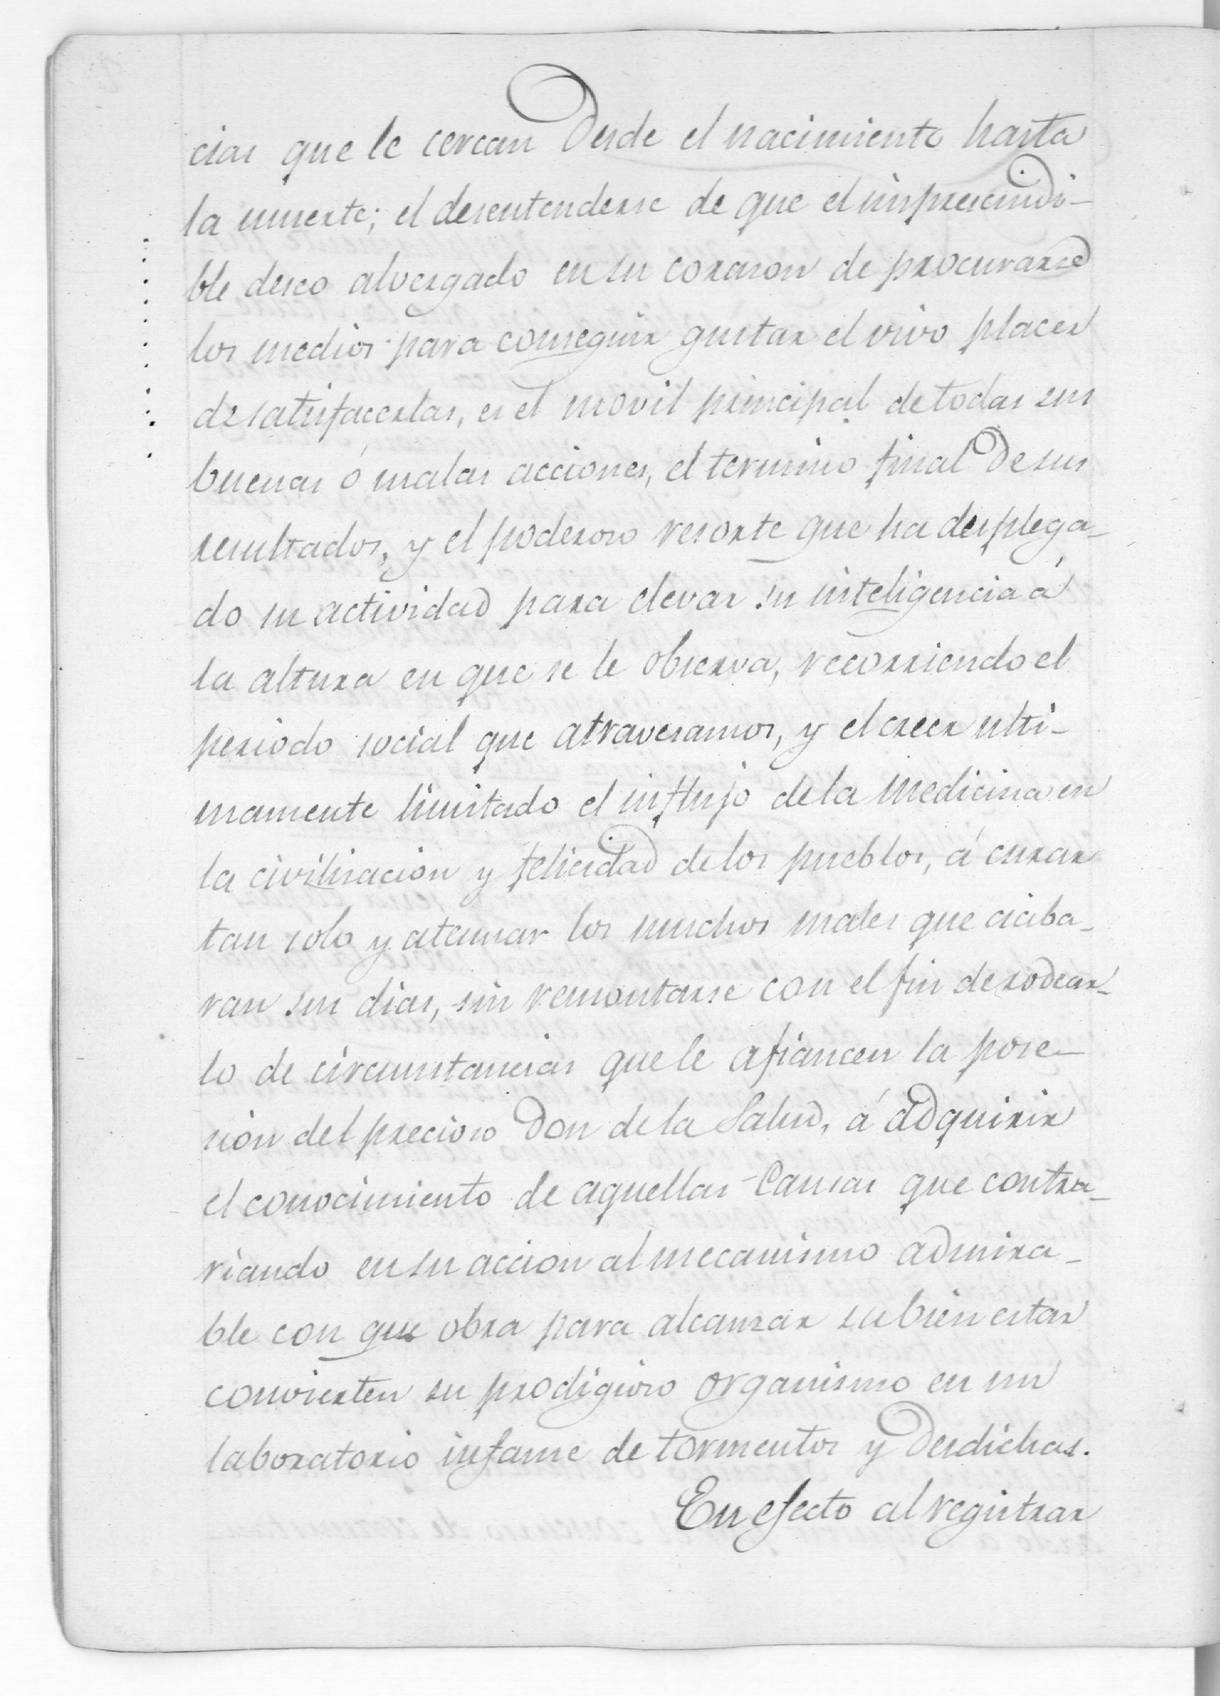 cias que le cercan desde el nacimiento hasta
la muerte; el desentenderse de que el imprescindi-
ble deseo alvergado en su corason de procurarse
los medios para conseguir gustar el vivo placer
de satisfacerlas, es el movil principal de todas sus
buenas ó malas acciones, el termino final de sus
resultados, y el poderoso resorte que ha desplega-
do su actividad para elevar su inteligencia á
la altura en que se le observa, recorriendo el
periodo social que atravesamos, y el creer ulti-
mamente limitado el influjo de la medicina en
la civilisacion y felicidad de los pueblos, á curar
tan solo y atenuar los muchos males que aciba-
ran sus dias, sin remontarse con el fin de rodear-
lo de circunstancias que le afiancen la pose-
sion del precioso Don de la Salud, á adquirir
el conocimiento de aquellas Causas que contra-
riando en su accion al mecanismo admira-
ble con que obra para alcanzar su bien estar
convierten su prodigioso organismo en un
laboratorio infame de tormentos y desdichas.
En efecto al registrar